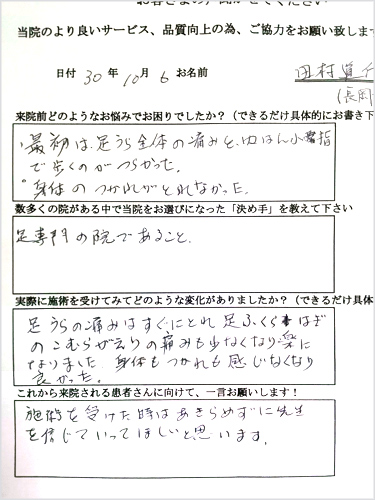 当院のより良いサービス、品質向上の為、ご協力をお願い致しま
日付 30 年 10 月 6 お名前 田村
(長岡
来院前どのようなお悩みでお困りでしたか?(できるだけ具体的にお書き下
・最初は足うら全体の痛みと、小指
で歩くのがつらかった。
・身体のつかれがとれなかった。
数多くの院がある中で当院をお選びになった「決め手」を教えて下さい
足専門の院であること。
実際に施術を受けてみてどのような変化がありましたか?(できるだけ具体
足うらの痛みはすぐにとれ足ふくらはぎ
のこむらがえりの痛みも少なくなり楽に
なりました 身体もつかれも感じなくなり
良かった。
これから来院される患者さんに向けて、一言お願いします!
施術を受けた時はあきらめずに先生
を信じていってほしいと思います。